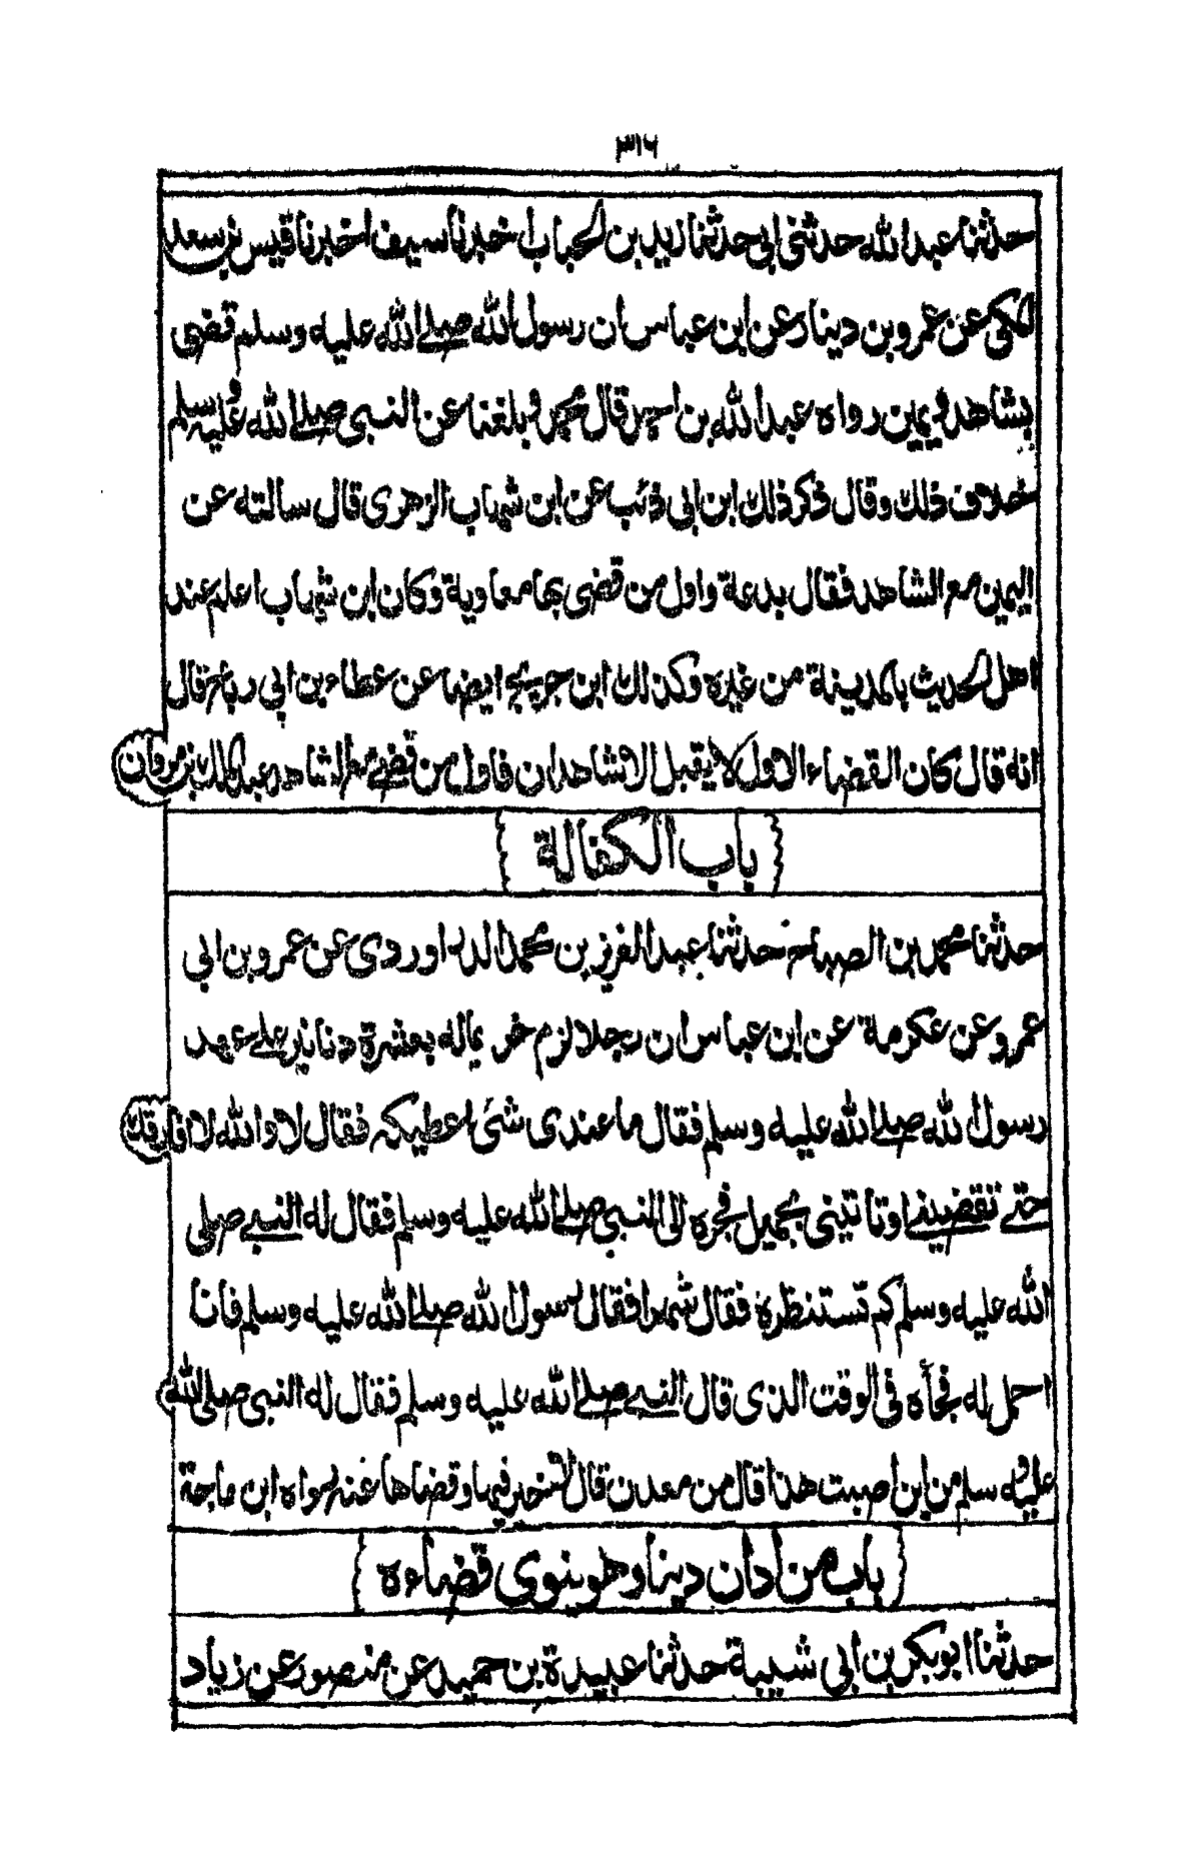 ٣١٦
حدثنا عبد الله حدثني ابي حدثنا زيد بن الحباب اخبرنا سيف اخبرنا قيس بن سعد
المكي عن عمرو بن دينار عن ابن عباس ان رسول الله صلے الله عليه وسلم قضى
بشاهد ويمين رواه عبد الله بن احمد قال محمد وبلغنا عن النبي صلے الله عليه وسلم
خلاف ذلك وقال ذكر ذلك ابن ابي ذئب عن ابن شهاب الزهري قال سالته عن
اليمين مع الشاهد فقال بدعة واول من قضى بها معاوية وكان ابن شهاب اعلم عند
اهل الحديث بالمدينة من غيره وكذلك ابن جريج ايضا عن عطاء بن ابي رباح قال
انه قال كان القضاء الاول لا يقبل الا شاهدان فاول من قضے مع الشاهد عبد الملك بن مروان
باب الكفالة
حدثنا محمد بن الصباح حدثنا عبد العزيز بن محمد الدراوردي عن عمرو بن ابي
عمرو عن عكرمة عن ابن عباس ان رجلا لزم غريماله بعشرة دنانير علے عهد
رسول الله صلے الله عليه وسلم فقال ما عندي شئ اعطيكه فقال لا والله لا افارقك
حتے تقضينے او تاتيني بحميل فجره الى النبي صلے الله عليه وسلم فقال له النبے صلى
الله عليه وسلم كم تستنظره فقال شهرا فقال رسول الله صلے الله عليه وسلم فانا
احمل له فجأه في الوقت الذي قال النبے صلے الله عليه وسلم فقال له النبي صلى الله
عليه وسلم من اين اصبت هذا قال من معدن قال لا خير فيها وقضاها عنه رواه ابن ماجة
باب من ادان دينا وهو ينوي قضاءه
حدثنا ابو بكر بن ابي شيبة حدثنا عبيدة بن حميد عن منصور عن زياد